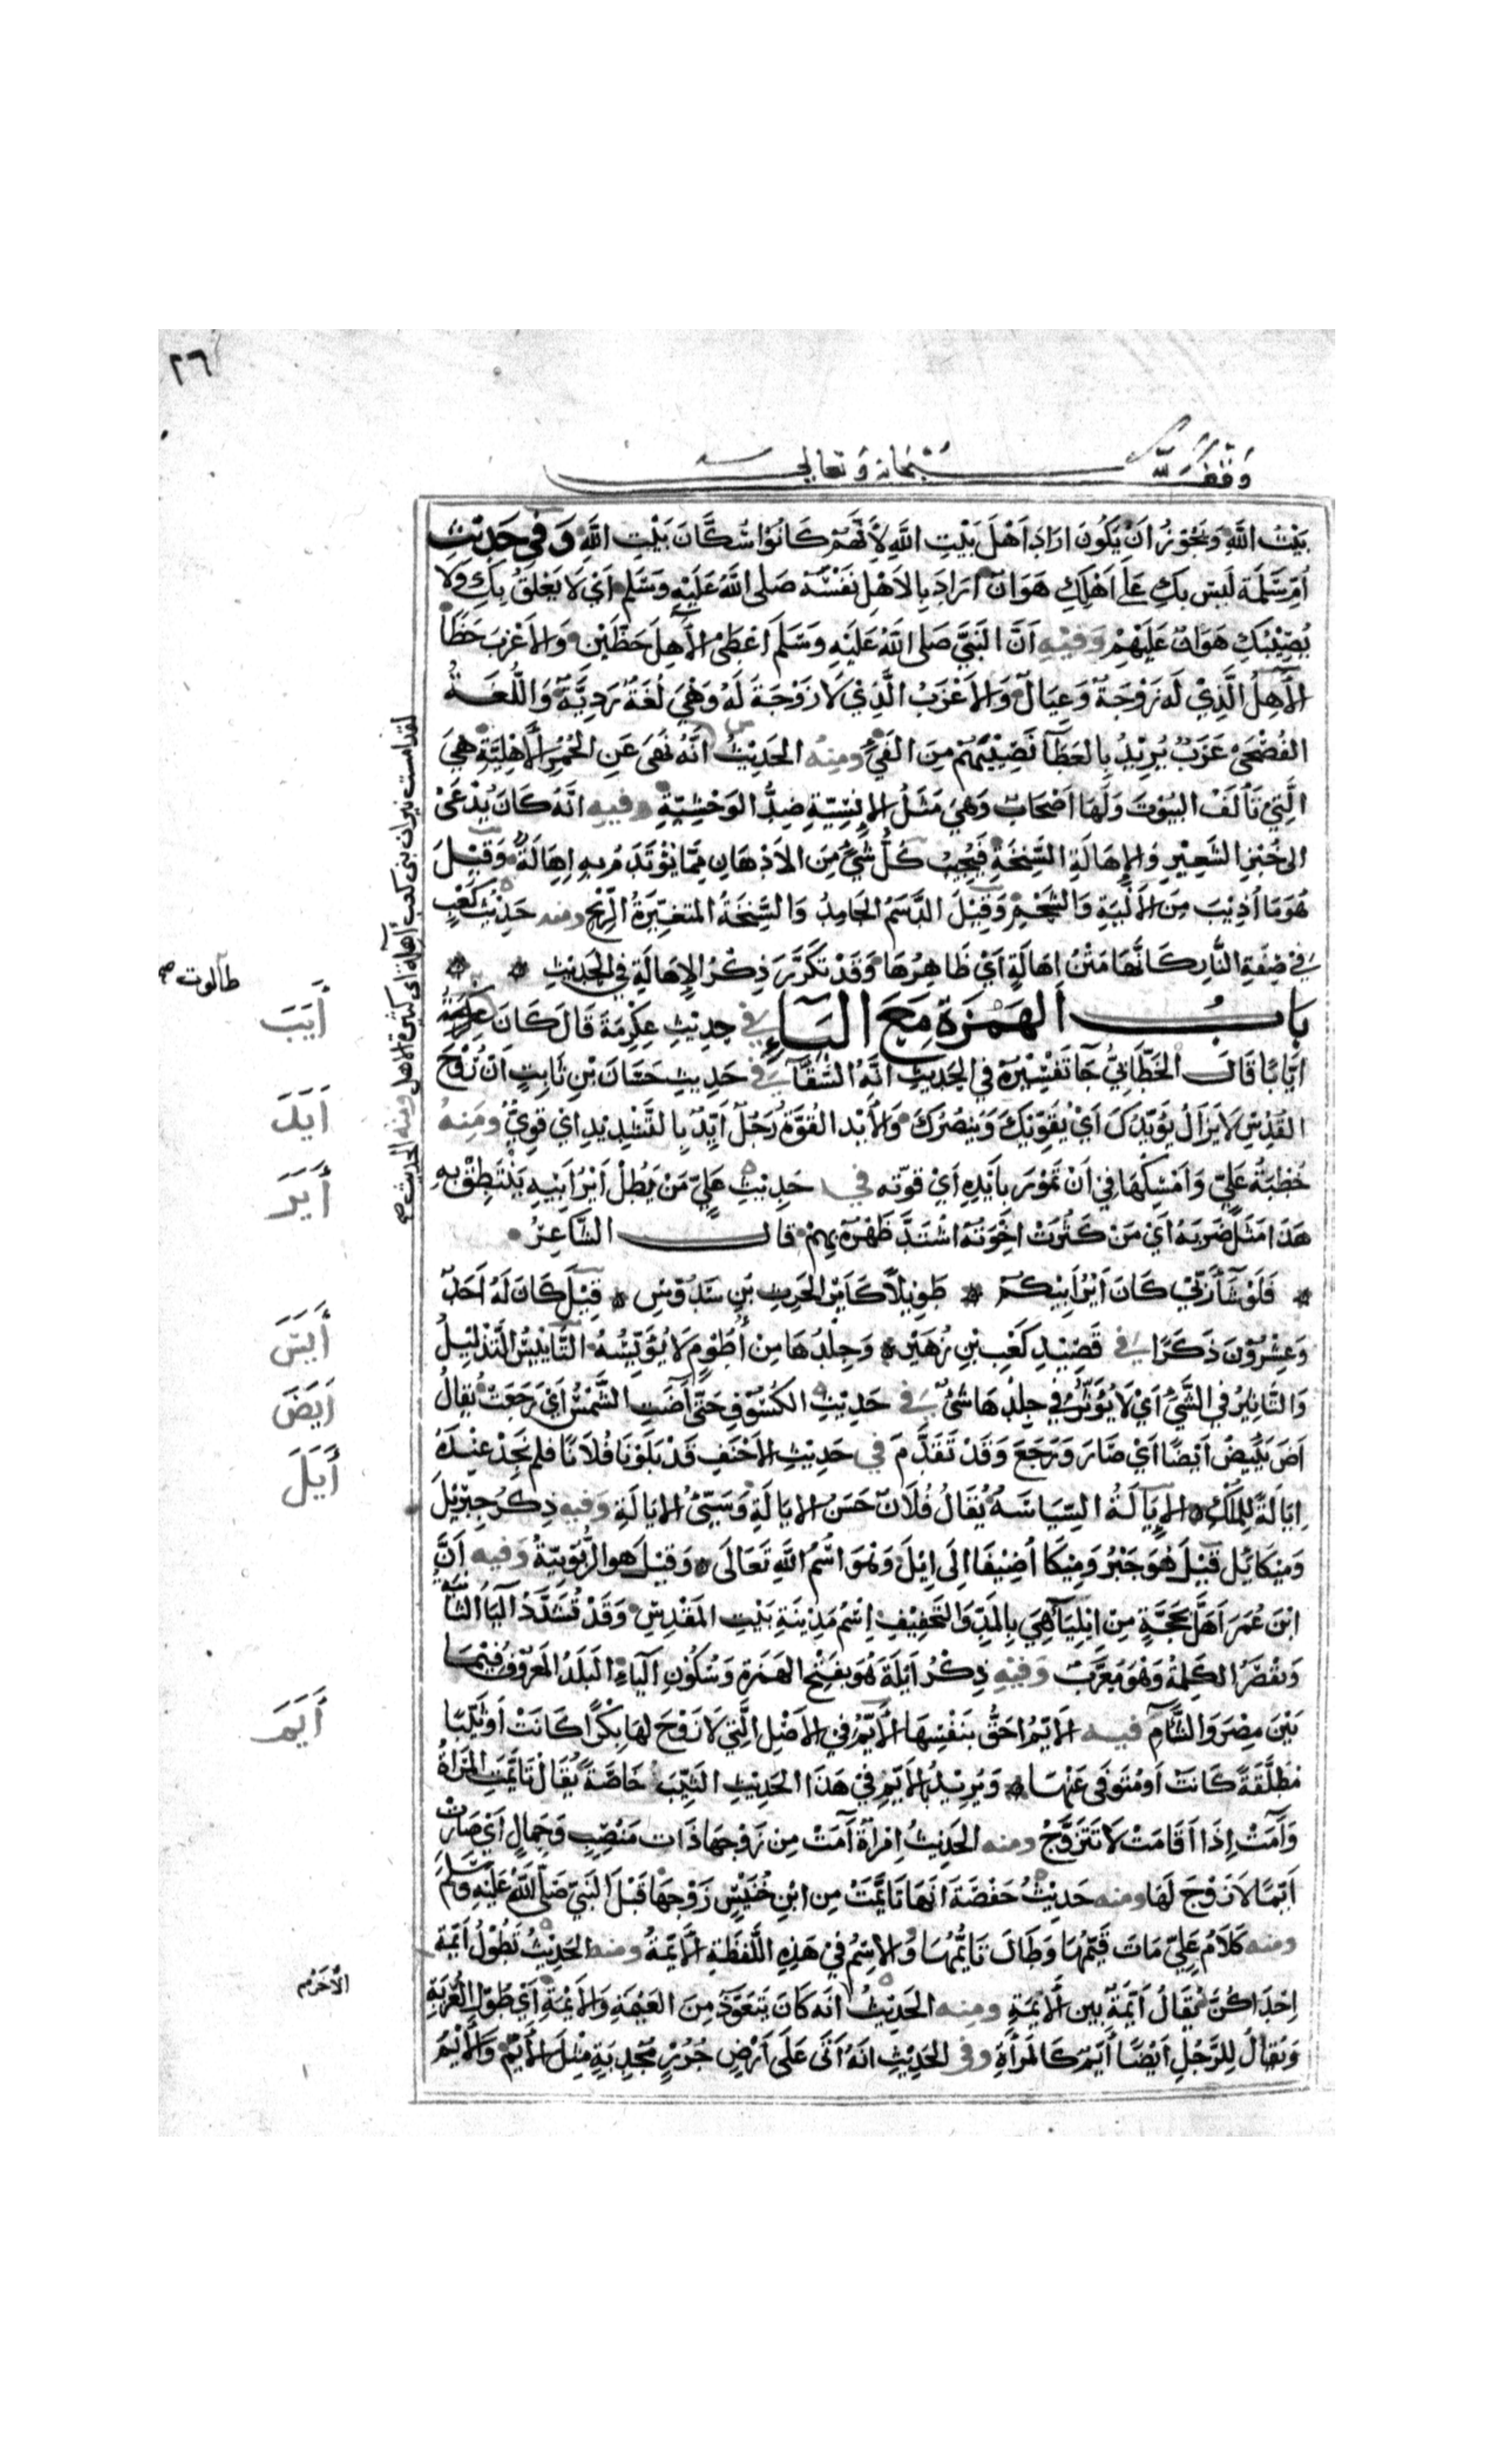 ٢٦
وقف لله سبحانه وتعالى
بَيْتُ اللَّهِ وَيَجُوْزُ اَنْ يَكُونَ ارَادَ اَهْلَ بَيْتِ اللَّهِ لِأَنَّهُمْ كَانُوْا سُكَّانَ بَيْتِ اللَّهِ وَفِي حَدِيْثِ
اُمِّ سَلَمَةَ لَيْسَ بِكِ عَلَى اَهْلِكِ هَوَانٌ ارَادَ بِالاَهْلِ نَفْسَهُ صَلى اللَّهُ عَلَيْهِ وَسَلم اَيْ لَا يَعْلَقُ بِكِ وَلَا
يُصِيْبُكِ هَوَانٌ عَلَيْهِمْ وَفِيْهِ اَنَّ النَبِيَّ صَلى اللَّهُ عَلَيْهِ وَسَلَمَ اعْطَى الآهِلَ حَظَّيْنِ وَالاَعْزَبَ حَظًّا
الآهِلُ الَّذِيْ لَهُ زَوْجَةٌ وَعِيَالٌ وَالاَعْزَبُ الَّذِيْ لَا زَوْجَةَ لَهُ وَهْيَ لُغَةٌ رَدِيَّةٌ وَاللُّغَةُ
الفُصْحَى عَزَبٌ يُرِيْدُ بِالعَطَآ نَصِيْبَهُمْ مِنَ الفَيْءِ ومِنْهُ الحَدِيْثُ انَّهُ نَهَى عَنِ الحُمُرِ الْأَهْلِيَّةِ هِيَ
الَّتِيْ تَأْلَفُ البُيُوْتَ وَلَهَا اَصْحَابٌ وَهِيَ مَثَلُ الاِنْسِيّةِ ضِدُّ الوَحْشِيّةِ وفيه انَّهُ كَانَ يُدْعَىْ
الى خُبْزِ الشَّعِيْرِ وَالاِهَالَةِ السَّنِخَةِ فَيُجِيْبُ كُلُّ شَيْءٍ مِنَ الاَدْهَانِ مِمَّا يُؤْتَدَمُ بِهِ اِهَالَةٌ وَقِيْلَ
هُوَمَا أُذِيْبَ مِنَ الاَلْيَةِ وَالشَّحْمِ وَقِيْلَ الدَّسَمُ الجَامِدُ وَالسَّنِخَةُ المتغيّرةُ الرِّيْحِ ومنه حَدِيْثُ كَعْبٍ
فِي صِفَةِ النَّارِ كَانَّهَا مَتْنُ اِهَالَةٍ اَيْ ظَاهِرُهَا وَقَدْ تَكَرَّرَ ذِكْرُ الاِهَالَةِ فِي الحَدِيْثِ
بَابُ الهَمْزَةِ مَعَ اليَآءِ فِي حَدِيْثِ عِكْرِمَةَ قَالَ كَانَ
ايَّابًا قَالَ الخَطَّابِيُّ جَآ تَفْسِيْرُهُ فِي الحَدِيْثِ انَّهُ السَّقَّآ فِي حَدِيْثِ حَسَّانَ بْنِ ثَابِتٍ انَّ رُوْحَ
القُدُسِ لَا يَزَالُ يُؤَيِّدُكَ اَيْ يُقَوِّيْكَ وَيَنْصُرُكَ وَالأَيْد القُوّةُ رَجُلٌ ايِّدٌ بِالتَّشْدِيْدِ اي قَوِيٌّ ومَنِهُ
خُطْبَةُ عَلِيّ وَاَمْسِكْهَا فِي اَنْ تَمُوْرَ بِاَيْدِهِ اَيْ قوّته في حَدِيْثِ عَلِيّ مَنْ يَطُلْ اَيْرُ اَبِيْهِ يَنْتَطِقْ بِهِ
هَذَا مَثَلٌ ضَرَبَهُ اَيْ مَنْ كَثُرَتْ اخْوَتُهُ اشْتَدَّ ظَهْرُهُ بِهِمْ قال الشَّاعِرُ
فَلَوْ شَآءَ رَبّيْ كَانَ اَيْرُ اَبِيْكمْ طَوِيْلًا كَاَيْرِ الحَرِثِ بْنِ سَدُوْسِ قِيْلَ كَانَ لَهُ اَحَدٌ
وَعِشْرُوْنَ ذَكَرًا في قَصِيْدِ كَعْبِ بْنِ زُهَيْر وَجِلْدُهَا مِنْ أَطُوْمٍ لَا يُؤَيِّسُهُ التَّأْيِيْسُ التَذْلِيْلُ
وَالتَّاثِيْرُ فِي الشَّيْءِ اَيْ لَا يُؤَثِّرُ فِي جِلْدِهَا شَيْءٌ في حَدِيْثِ الكُسُوْفِ حَتَّى آضَتِ الشَّمْسُ اَيْ رَجَعَتْ يُقَالُ
اضَ يَئِيْضُ اَيْضًا اَيْ صَارَ وَرَجَعَ وَقَدْ تَقَدَّمَ في حَدِيْثِ الاَحْنَفِ قَدْ بَلَوْنَا فُلَانًا فلم نَجِدْ عِنْدَهُ
اِيَالَةً لِلمُلْكِ الاِيَالَةُ السِّيَاسَةُ يُقَالُ فُلَانٌ حَسَنُ الايَالَةِ وَسَيّئُ الايَالَةِ وَفيه ذِكْرُ جِبْرَئِلَ
وَمِيْكَائِل قِيْلَ هُوَ جَبْرُ وَمِيْكَا اُضِيْفَا الَى اِيْلَ وَهُوَ اسْمُ اللَّهِ تَعَالَى وَقِيْلَ هو الرُّبُوْبِيّةُ وَفيه اَنَّ
ابْنَ عُمَرَ اَهَلَّ بِحَجَّةٍ مِنِ ايْلِيَآ هِيَ بِالمَدِّ وَالتَخْفِيْفِ اِسْمُ مَدِيْنَةِ بَيْتِ المَقْدِسِ وَقَدْ تُشَدَّدُ اليَآءُ الثَّانيَةُ
وَيُقْصَرُ الكَلِمَةُ وَهُوَ مُعَرَّبٌ وَفِيْهِ ذِكْرُ اَيْلَةَ هُوَ بِفَتْحِ الهَمْزةِ وَسُكُوْنِ اليَاءِ البَلَدُ المَعْرُوْفُ فِيْمَا
بَيْنَ مِصْرَ وَالشَّامِ فيه الاَيّمُ احَقُّ بِنَفْسِهَا الأَيّمُ فِي الاَصْلِ الَّتِيْ لَا زَوْجَ لهَا بِكْرًا كَانَتْ اَوْ ثَيّبًا
مُطَلَّقَةً كَانَتْ اَو مُتَوَفَّى عَنْهَا وَيُرِيْدُ بِالاَيّمِ فِي هَذَا الحَدِيْثِ الثَيّبَ خَاصَّةً يُقَالُ تَايَّمَتِ المَرْاَةُ
وَآمَتْ اِذَا اَقَامَتْ لَا تَتَزَوَّجُ ومنه الحَدِيْثُ امْرَاَةٌ آمَتْ مِنْ زَوْجِهَا ذَات مَنْصِبٍ وَجَمَالٍ اَيْ صَارَتْ
اَيّمًا لَا زَوْجَ لَهَا ومنه حَدِيْثُ حَفْصَةَ انَّهَا تَايَّمَتْ مِن ابْنِ خُنَيْسٍ زَوْجِهَا قَبْلَ النَبِيِّ صَلَّى اللَّهُ عَلَيْهِ وَسَلَّمَ
ومنه كَلَامُ عَلِيّ مَاتَ قَيّمُهَا وَطَالَ تَايُّمُهَا وَالاِسْمُ فِيْ هَذِهِ اللَّفْظَةِ الْاَيْمَةُ ومنه الحَدِيْثُ تَطُوْلُ اَيْمَةُ
اِحْدَاكُنَّ يُقَالُ اَيْمَةٌ بَيّن الأَيْمَةِ ومِنه الحَدِيْثُ انّه كَانَ يَتَعَوَّذُ مِنَ العَيْمَةِ وَالأَيْمَةِ اَيْ طُوْلِ العُزْبَةِ
وَيُقَالُ لِلرَّجُلِ اَيْضًا اَيّمٌ كَالمَرْاَةِ وفي الحَدِيْثِ انَهُ اَتَى عَلَى اَرْضٍ جُرُزٍ مُجْدِبَةٍ مِثْلَ الأَيْمِ وَالأَيْمُ
لقد امست نيران بنى كعب آهلة اى كثيرة الاهل ومنه الحديث صح
طالوت صح
أَيَبَ
أَيَدَ
أَيَرَ
أَيَسَ
اَيَضَ
أَيَلَ
أَيَمَ